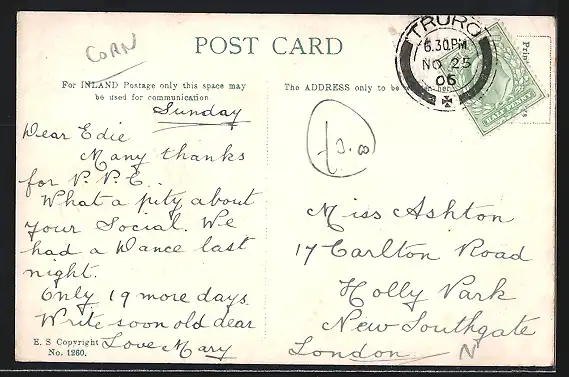 Corn
POST CARD
TRURO
6.30PM
NO 25
06
HALFPENNY
For INLAND Postage only this space may
be used for communication
The ADDRESS only to be
Sunday
Dear Edie
Many thanks
for P.P.C..
What a pity about
your Social. We
had a Dance last
night.
Only 19 more days.
Write soon old dear
Love Mary
E. S Copyright
No. 1260.
Miss Ashton
17 Carlton Road
Holly Park
New Southgate
London N